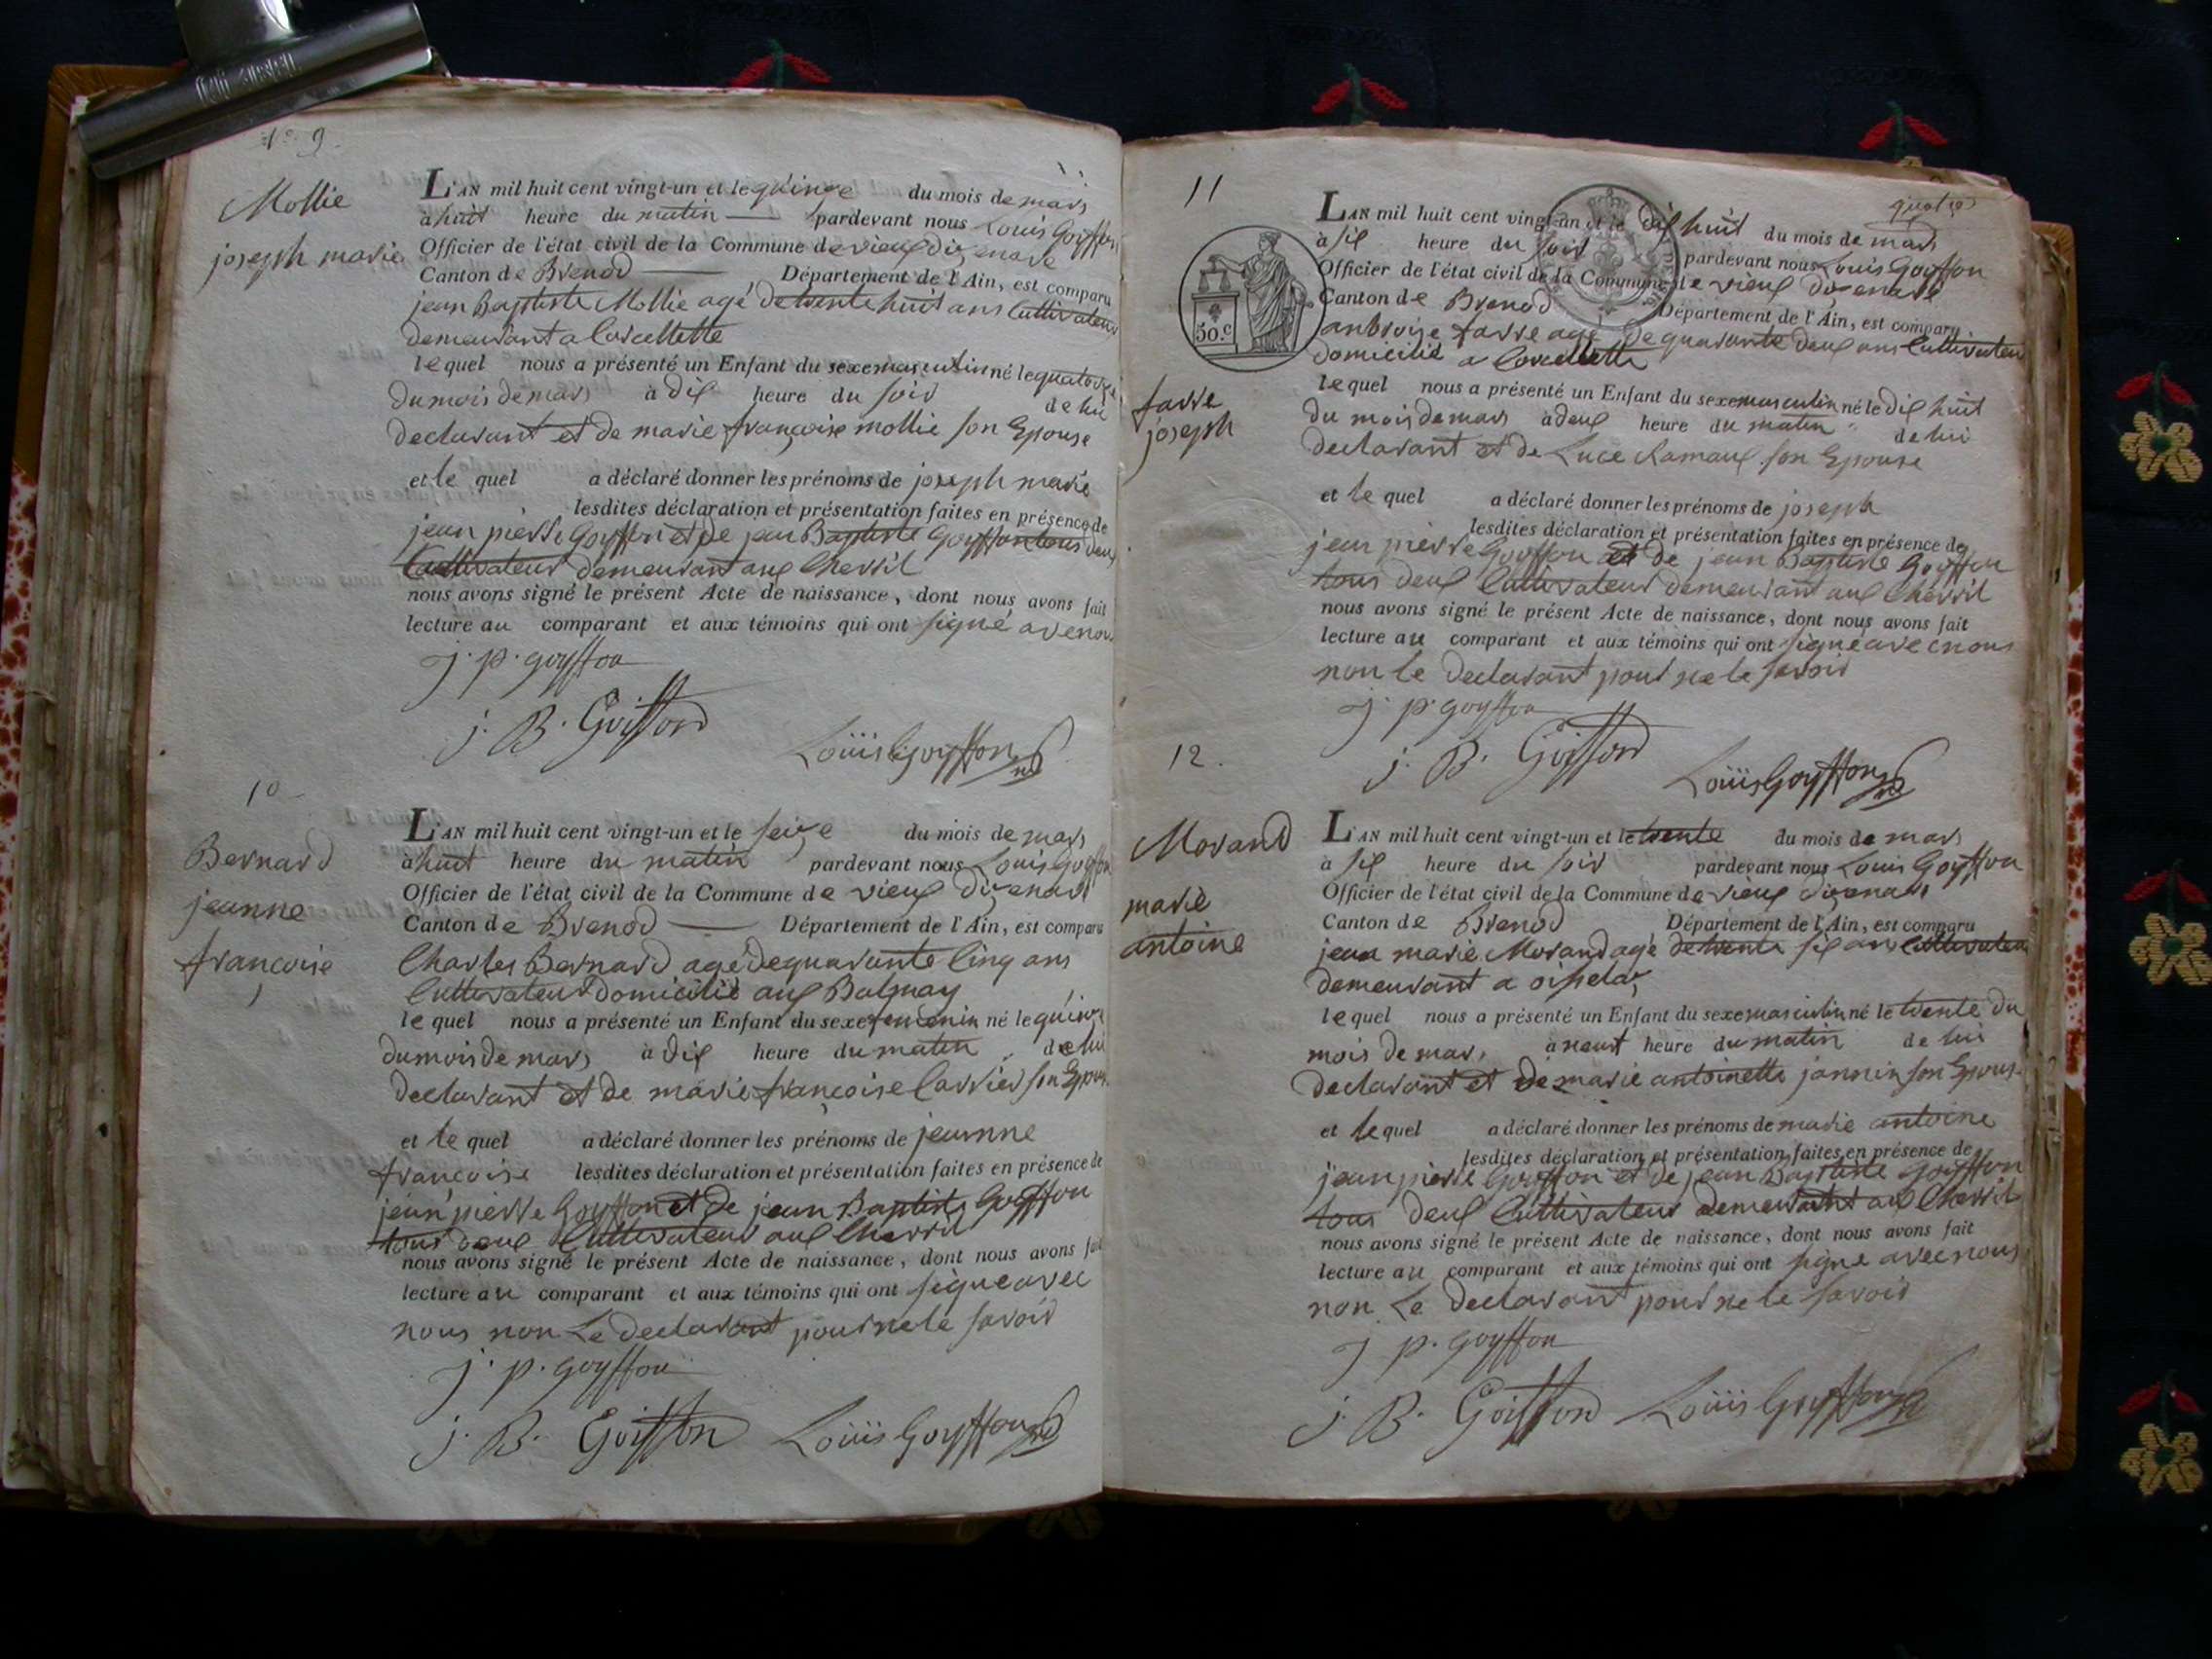 N° 9
Mollie
joseph marie
L'AN mil huit cent vingt-un et le quinze du mois de mars
à huit heure du matin pardevant nous Louis Goyffon
Officier de l'état civil de la Commune de vieux dizenave
Canton de Brenod Département de l'Ain, est comparu
jean Baptiste Mollie agé de trente huit ans Cultivateur
demeurant a Corcellette
le quel nous a présenté un Enfant du sexe masculin né le quatorze
du mois de mars à dix heure du soir de lui
declarant et de marie françoise mollie son Epouse
et le quel a déclaré donner les prénoms de joseph marie
lesdites déclaration et présentation faites en présence de
jean pierre Goyffon et de jean Baptiste Goyffon tous deux
Cultivateur demeurant aux Cherril
nous avons signé le présent Acte de naissance, dont nous avons fait
lecture au comparant et aux témoins qui ont signé avenous
j. p. goyffon
j. B. Goiffond
Loüis Goyffon
10
Bernard
jeanne
françoise
L'AN mil huit cent vingt-un et le seize du mois de mars
à huit heure du matin pardevant nous Louis Goyffon
Officier de l'état civil de la Commune de vieux dizenave
Canton de Brenod Département de l'Ain, est comparu
Charles Bernard agé de quarante Cinq ans
Cultivateur domicilié aux Balmay
le quel nous a présenté un Enfant du sexe femenin né le quinze
du mois de mars à dix heure du matin de lui
declarant et de marie françoise Carrier son Epouse
et le quel a déclaré donner les prénoms de jeanne
françoise lesdites déclaration et présentation faites en présence de
jean pierre Goyffon et de jean Baptiste Goyffon
tous deux Cultivateur aux Cherril
nous avons signé le présent Acte de naissance, dont nous avons fait
lecture au comparant et aux témoins qui ont signe avec
nous non Le declarant pour ne le savoir
j. p. goyffon
j. B. Goiffon Loüis Goyffon
11
quatre
50.c
farre
joseph
L'AN mil huit cent vingt-un et le dix huit du mois de mars
à six heure du soir pardevant nous Louis Goyffon
Officier de l'état civil de la Commune de vieux dizenave
Canton de Brenod Département de l'Ain, est comparu
anbroise farre agé de quarante deux ans Cultivateur
domicilié a Corcellette
le quel nous a présenté un Enfant du sexe masculin né le dix huit
du mois de mars à deux heure du matin de lui
declarant et de Luce Ramaux son Epouse
et le quel a déclaré donner les prénoms de joseph
lesdites déclaration et présentation faites en présence de
jean pierre Goyffon et de jean Baptiste Goyffon
tous deux Cultivateur demeurant aux Cherril
nous avons signé le présent Acte de naissance, dont nous avons fait
lecture au comparant et aux témoins qui ont signe avec nous
non le declarant pour ne le savoir
j. p. goyffon
j. B. Goiffond
Loüis Goyffon
12.
Morand
marie
antoine
L'AN mil huit cent vingt-un et le trente du mois de mars
à six heure du soir pardevant nous Louis Goyffon
Officier de l'état civil de la Commune de vieux dizenave
Canton de Brenod Département de l'Ain, est comparu
jean marie Morand agé de trente six ans Cultivateur
demeurant a oisselaz
le quel nous a présenté un Enfant du sexe masculin né le trente du
mois de mars à neuf heure du matin de lui
declarant et de marie antoinette jannin son Epouse
et le quel a déclaré donner les prénoms de marie antoine
lesdites déclaration et présentation faites en présence de
jean pierre Goyffon et de jean Baptiste Goyffon
tous deux Cultivateur demeurant aux Cherril
nous avons signé le présent Acte de naissance, dont nous avons fait
lecture au comparant et aux témoins qui ont signe avec nous
non Le declarant pour ne le savoir
j. p. goyffon
j. B. Goiffon Loüis Goyffon